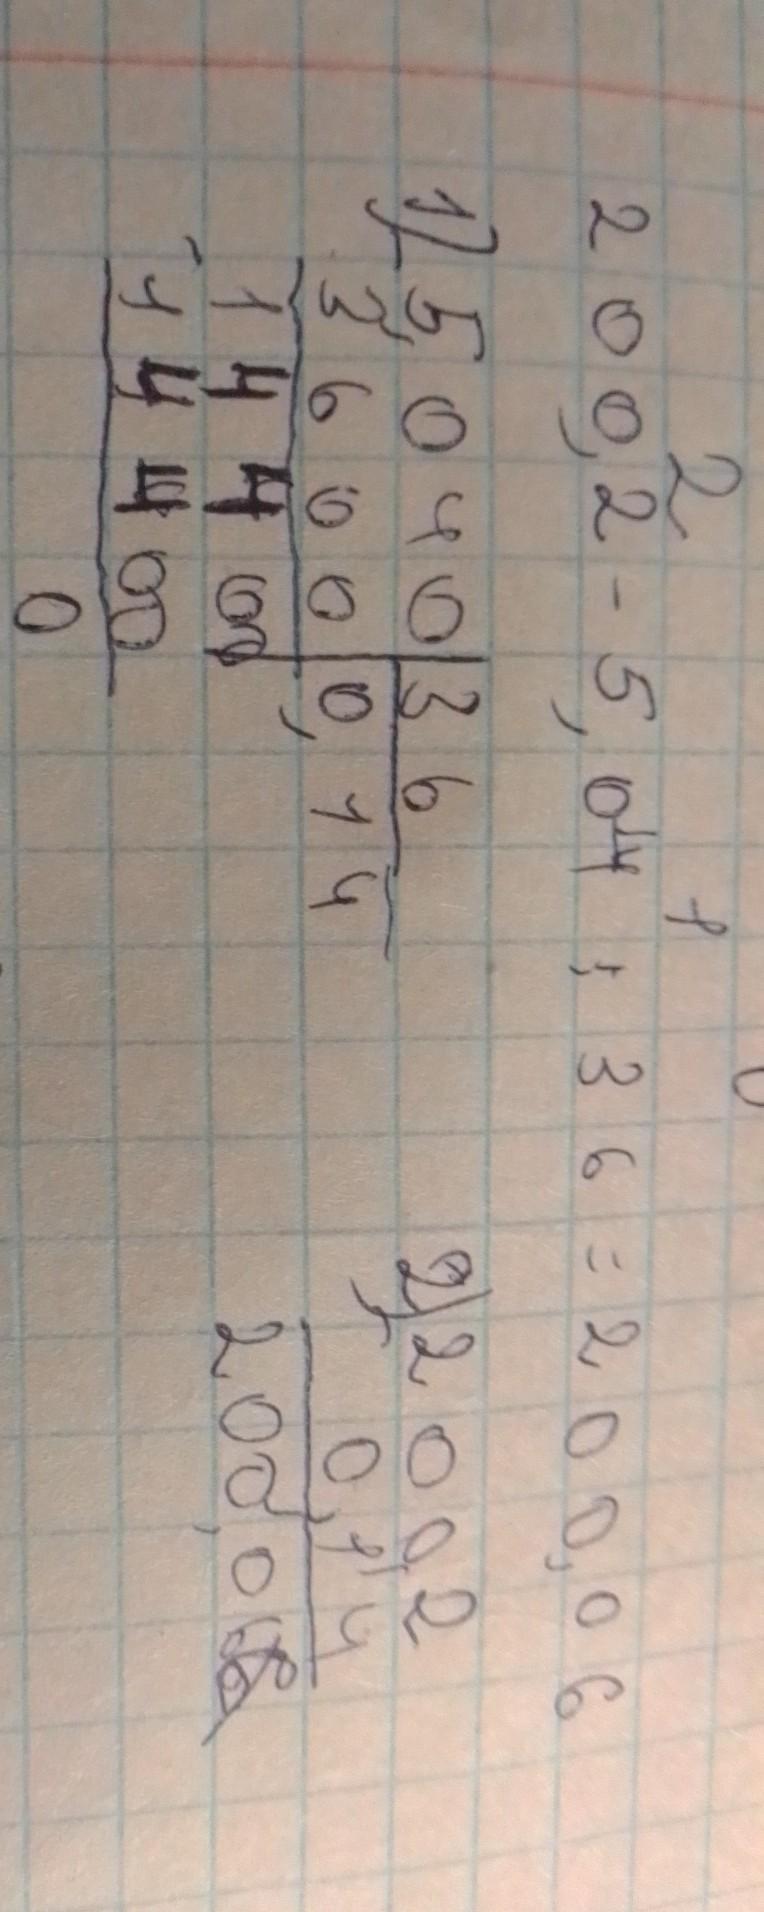 2 1
200,2-5,04:36=200,06
1) 5040 36 2) 200,2
3600 0,14 0,14
1440 200,06
1440
0